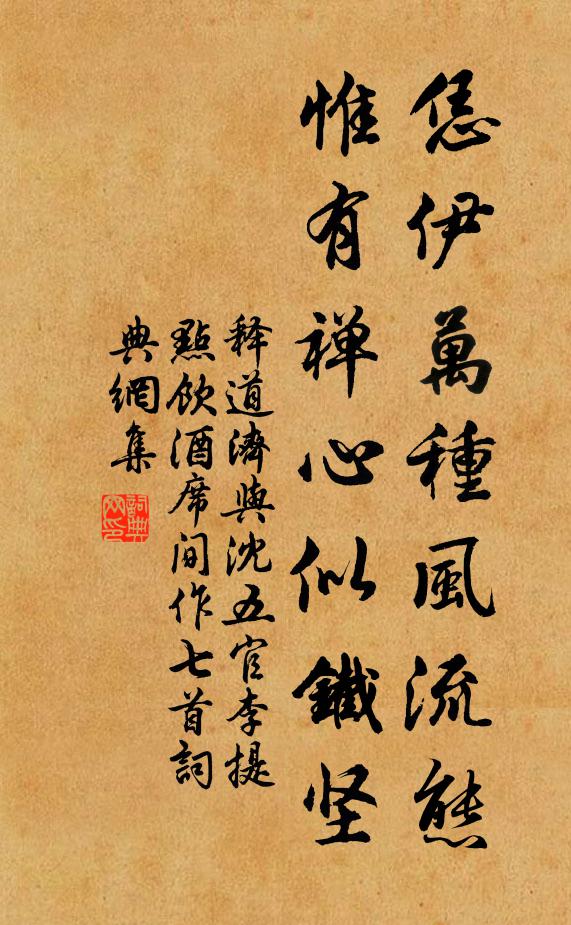 恁伊萬種風流態
惟有禅心似鐵坚
释道濟與沈五官李提
點飲酒席间作七首詞
典網集
詞典网印